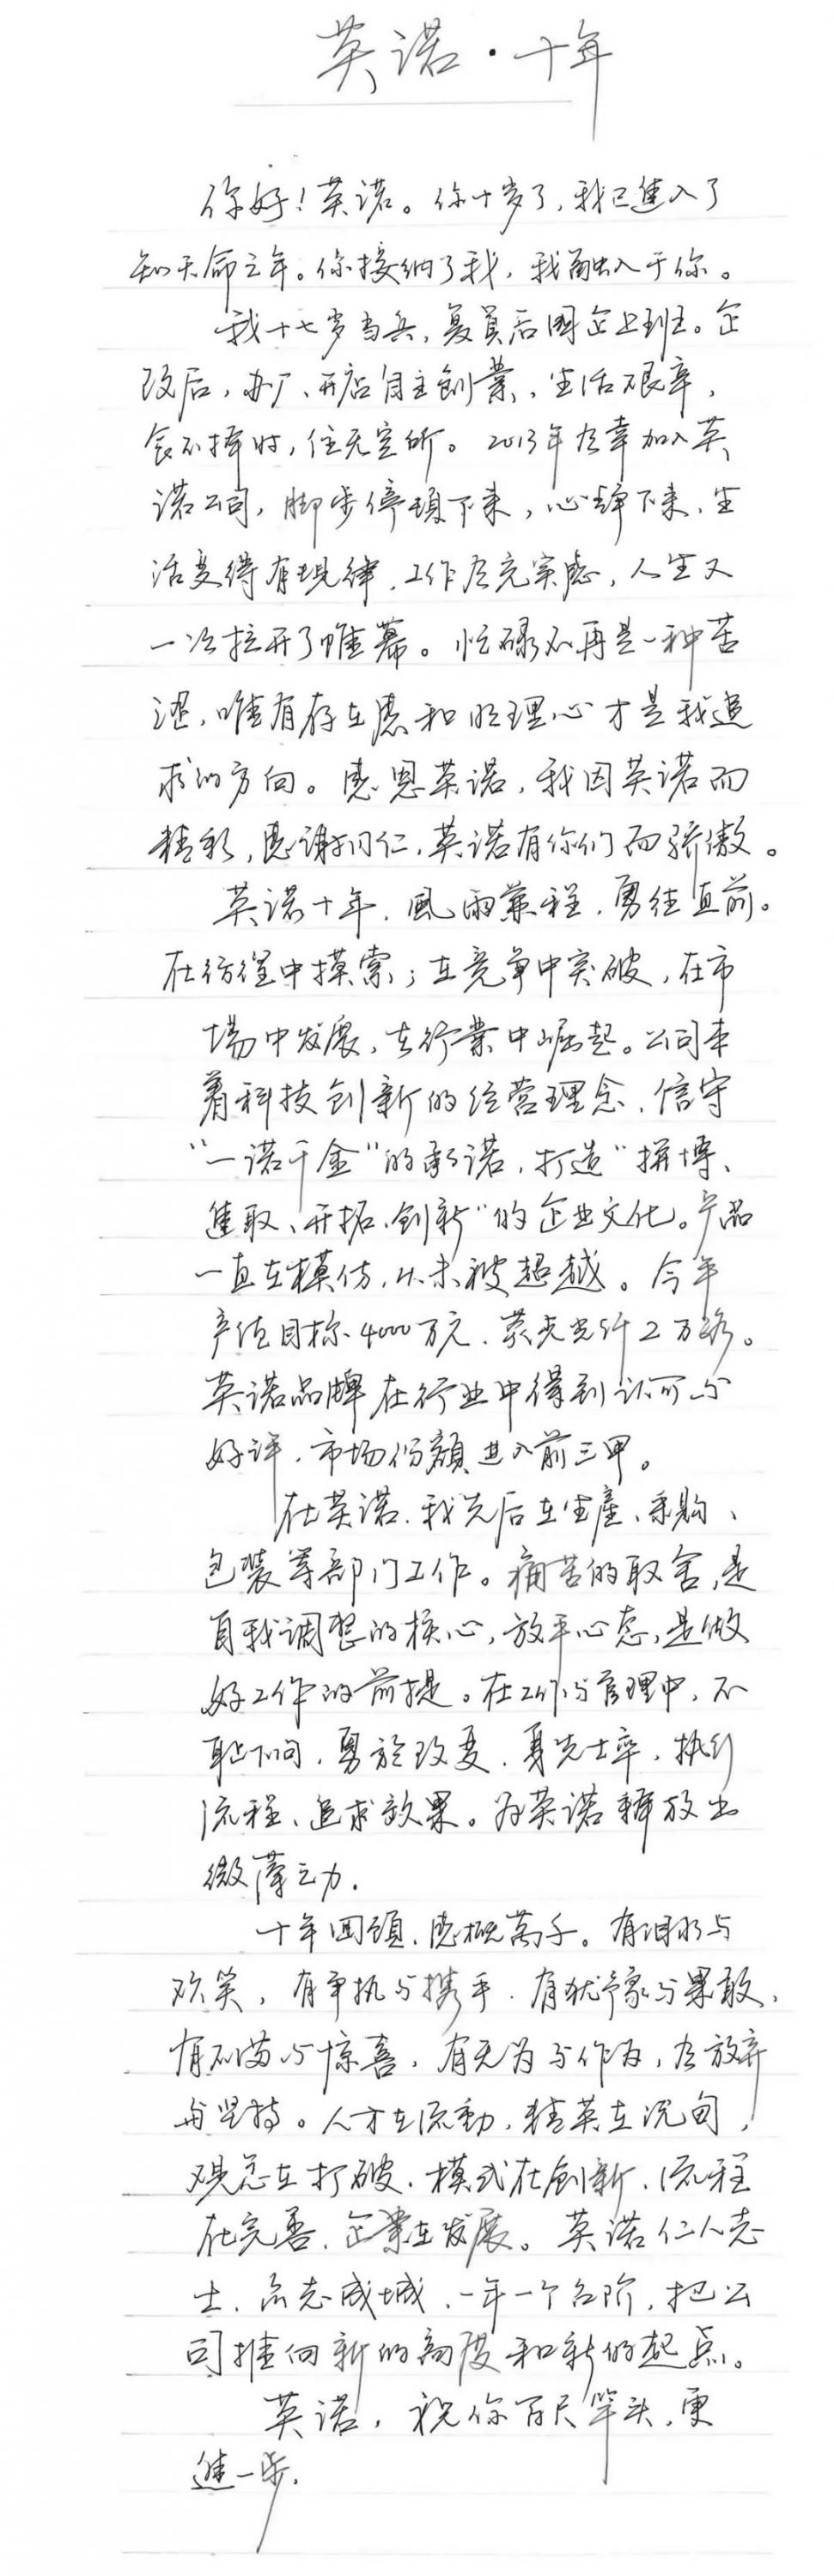 英诺·十年
你好！英诺。你十岁了，我已進入了
知天命之年。你接纳了我，我融入于你。
我十七岁当兵，复員后國企上班。企
改后，办厂、开店自主創業，生活艰辛，
食不择时，住无定所。2013年有幸加入英
诺公司，脚步停頓下来，心静下来，生
活变得有規律，工作有充实感，人生又
一次拉开了帷幕。忙碌不再是一种苦
涩，唯有存在感和 理心才是我追
求的方向。感恩英诺，我因英诺而
精彩，感謝同仁，英诺有你们而骄傲。
英诺十年，風雨兼程，勇往直前。
在彷徨中摸索；在竞争中突破，在市
場中发展，在行業中崛起。公司本
着科技创新的经营理念，信守
“一诺千金”的承诺，打造“拼博、
進取、开拓、创新”的企业文化。产品
一直在模仿，从未被超越。今年
产值目标4000万元，荧光光纤2万路。
英诺品牌在行业中得到认可与
好评，市场份額进入前三甲。
在英诺，我先后在生産、采购、
包装等部门工作。痛苦的取舍，是
自我调整的核心，放平心态，是做
好工作的前提。在工作与管理中，不
耻下问，勇於改变，身先士卒，执行
流程、追求效果。为英诺释放出
微薄之力。
十年回頭，感概萬千。有泪水与
欢笑，有争执与携手，有犹豫与果敢，
有不满与惊喜，有无为与作为，有放弃
与坚持。人才在流動，精英在沉甸，
观念在打破，模式在創新，流程
在完善，企業在发展。英诺仁人志
士，众志成城，一年一个台阶，把公
司推向新的高度和新的起点。
英诺，祝你百尺竿头，更
進一步。